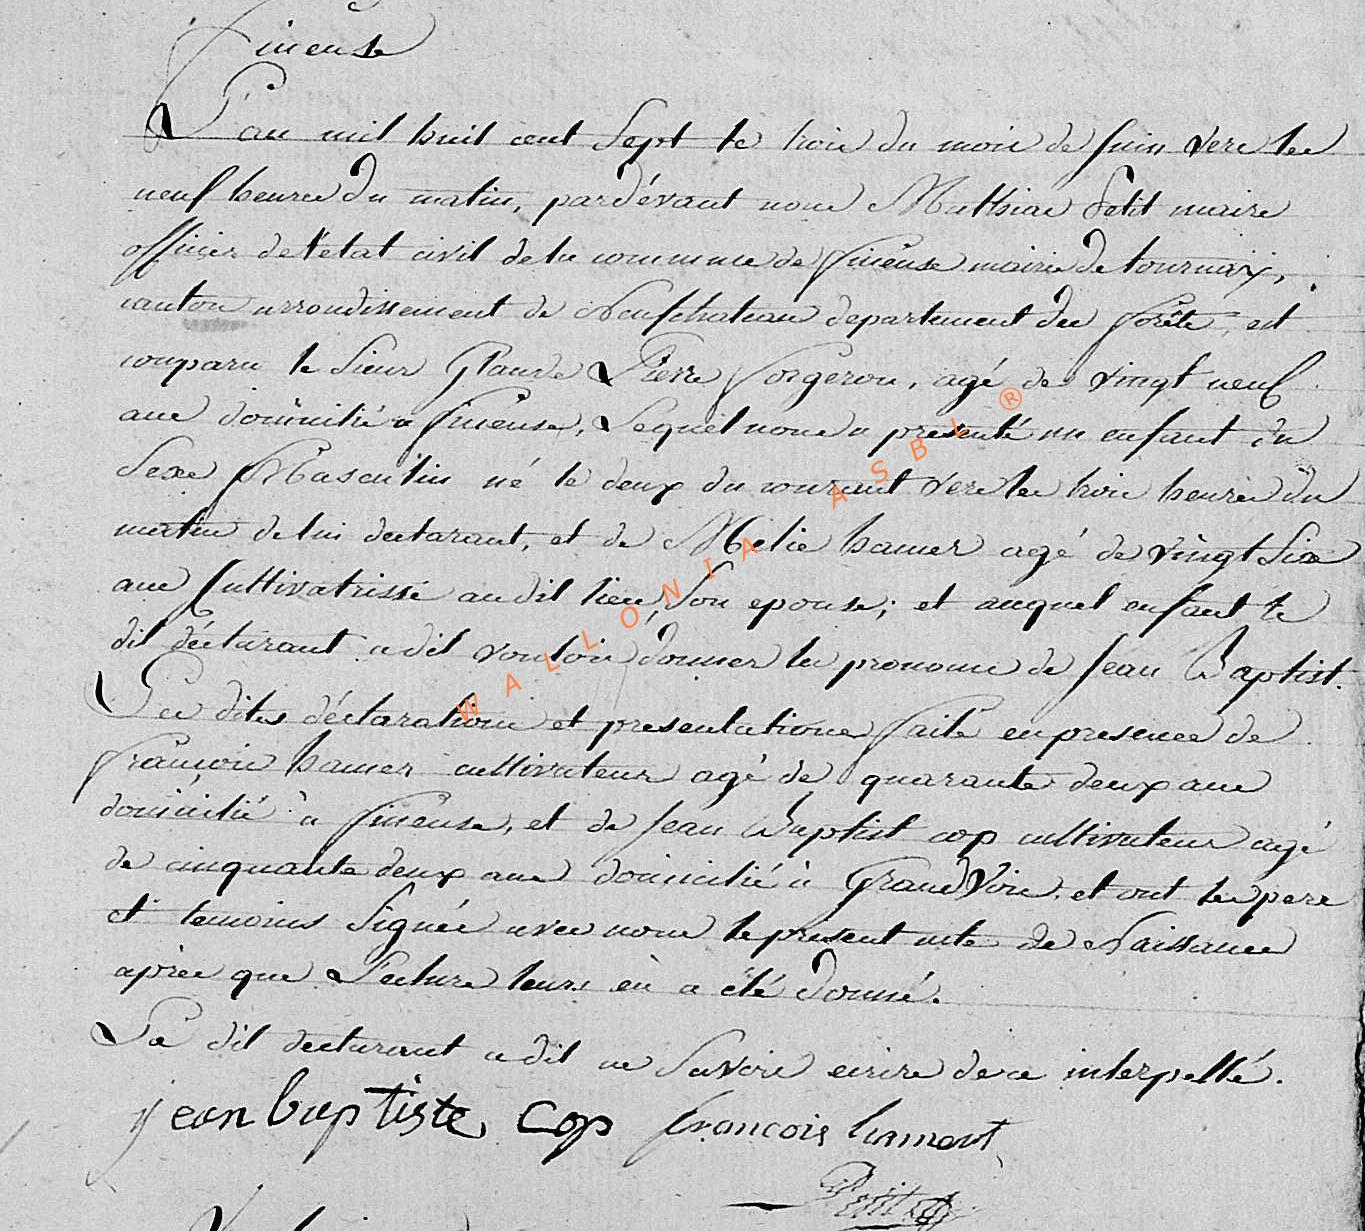 fineuse
L'an mil huit cent Sept le trois du mois de Juin vers les
neuf heures du matin, pardévant nous Mathias Petit maire
officier de l'etat civil de la commune de fineuse mairie de tournaÿ,
canton arrondissement de Neufchateau departement des forêts, est
comparu le Sieur Glaude Pierre Forgeron, agé de vingt neuf
ans domicilié a fineuse, Lequel nous a presenté un enfant du
Sexe Masculin né le deux du courant vers les trois heures du
matin de lui declarant, et de Melie hamer agé de vingt Six
ans Cultivatrisse audit lieu, Son epouse; et auquel enfant le
dit déclarant a dit vouloir donner les prenoms de Jean Baptist.
Les dites déclarations et presentations faite en presence de
françois hamer cultivateur agé de quarante deux ans
domicilié à fineuse, et de Jean Baptist cop cultivateur agé
de cinquante deux ans domicilié à Grand Voir, et ont les pere
et temoins Signés avec nous le present acte de Naissance
après que Lecture leurs en a été donné.
Le dit declarant a dit ne Savoir ecrire de ce interpellé.
jean baptiste cop françois hament
Petit
WALLONIA ASBL ®